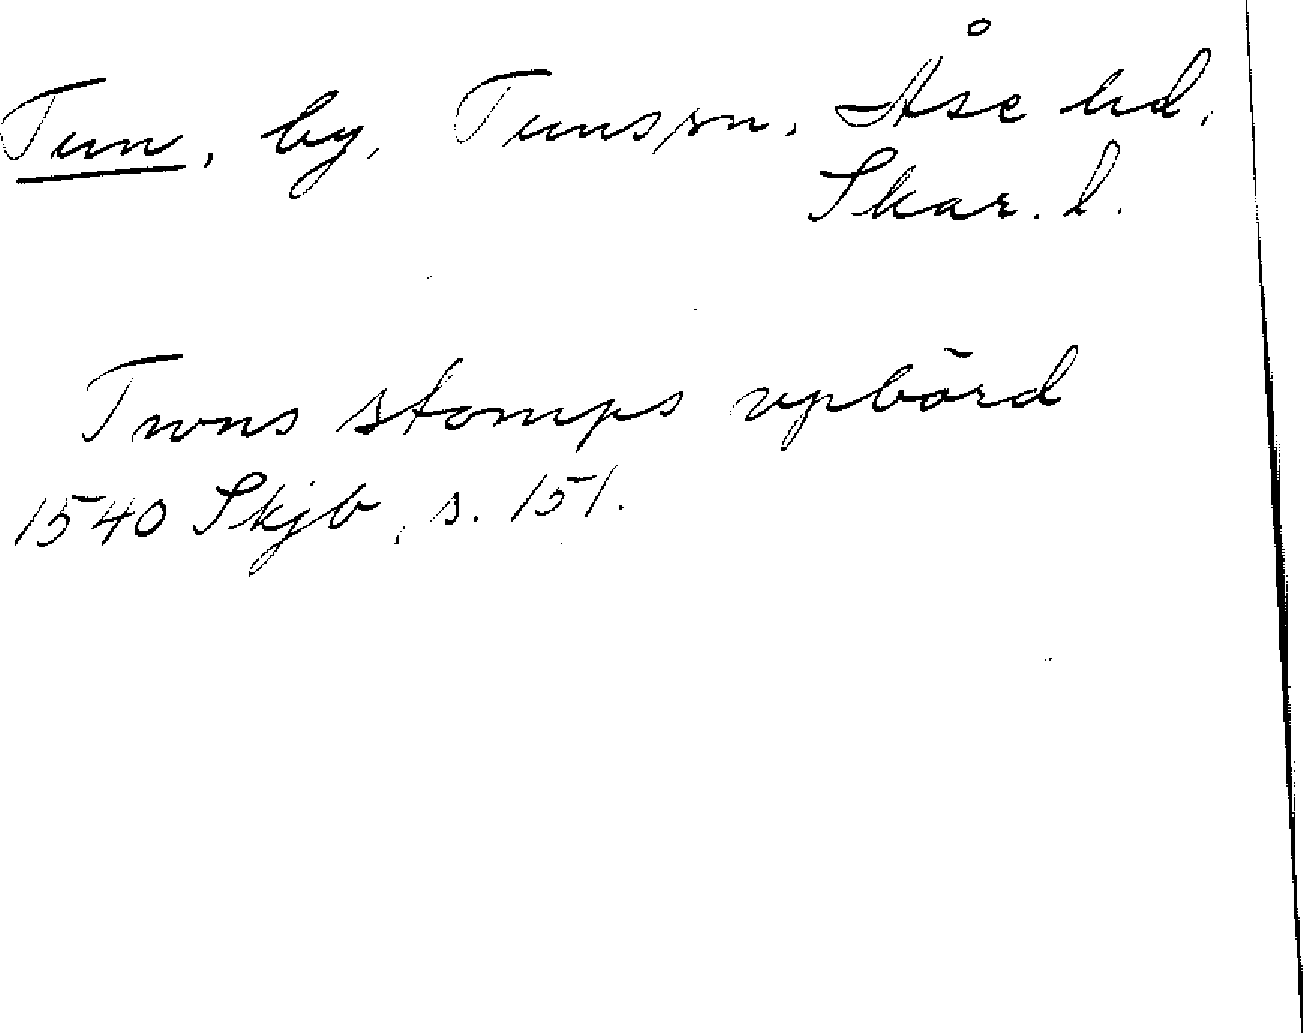 Tun, by, Tuns sn. Åse hd,
Skar. l.
Twns stomps vpbörd
1540 Skjb, s. 151.